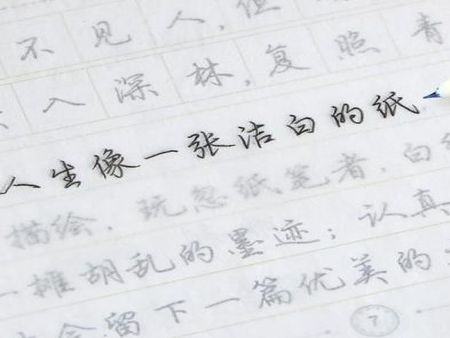 不见人,但
入深林,复照青
人生像一张洁白的纸
描绘.玩忽纸笔者,白纸
一摊胡乱的墨迹;认真
会留下一篇优美的
7